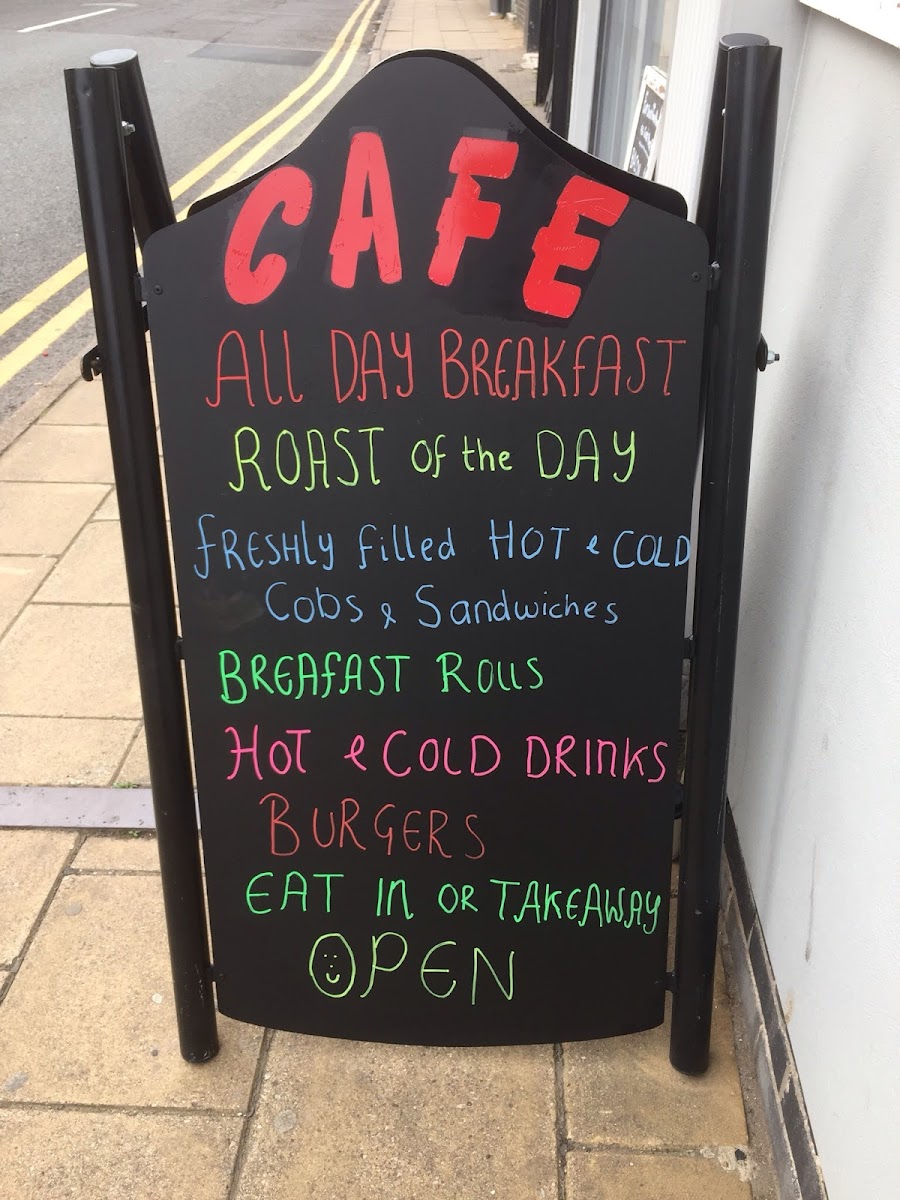 CAFE
All DAY BREAKFAST
ROAST of the DAY
fRESHly filled HOT & COLD
Cobs & Sandwiches
BREAfAST ROLLS
HOT & COLD DRINKS
BURGERS
EAT IN OR TAKEAWAY
OPEN